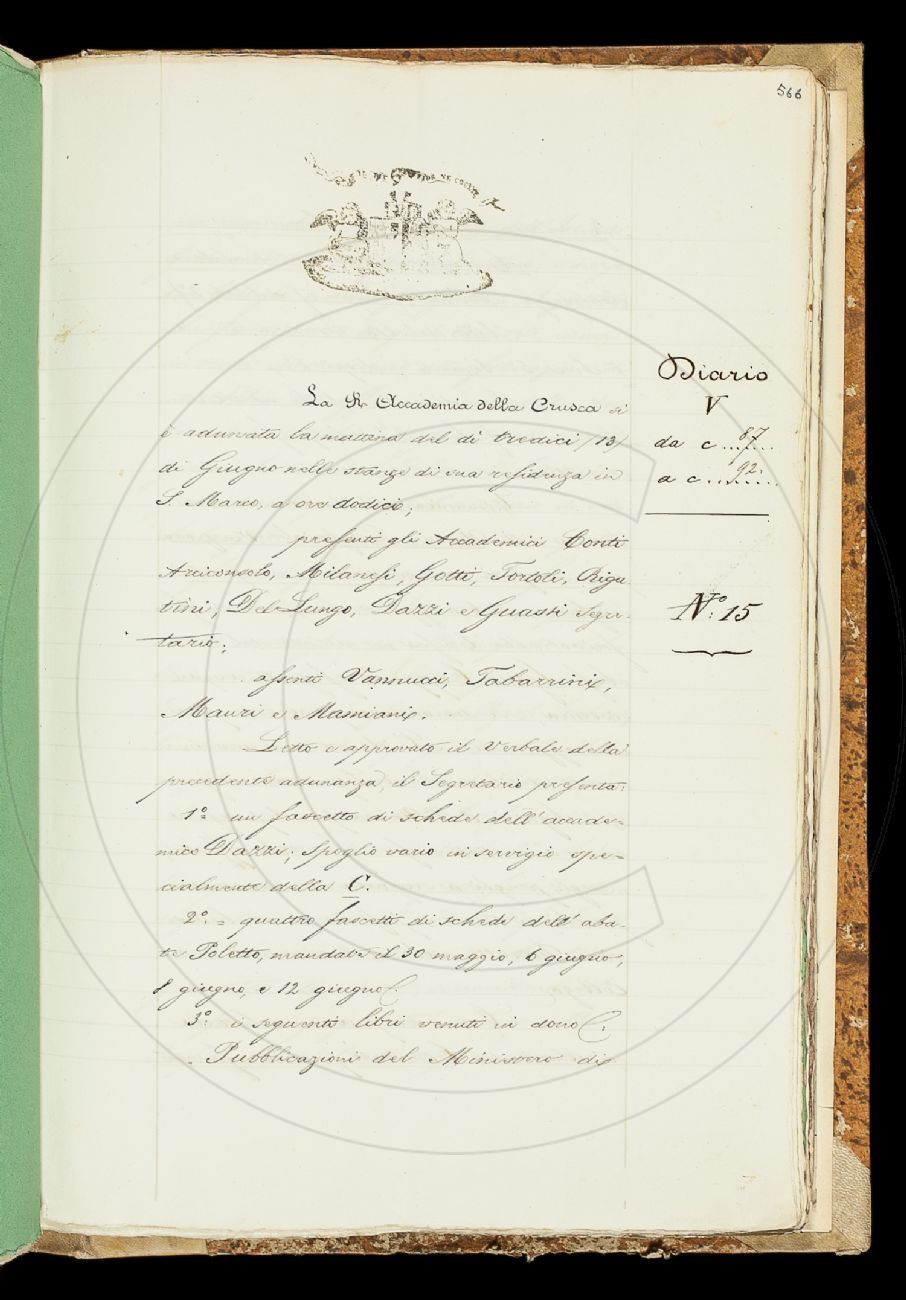 566
La R. Accademia della Crusca si
è adunata la mattina del dì tredici /13/
di Giugno nelle stanze di sua residenza in
S. Marco, a ore dodici;
presenti gli Accademici Conti
Arciconsolo, Milanesi, Gotti, Tortoli, Rigu
tini, Del-Lungo, Dazzi e Guasti Segre-
tario;
assenti Vannucci, Tabarrini,
Mauri e Mamiani.
Letto e approvato il Verbale della
precedente adunanza, il Segretario presenta:
1º un fascetto di schede dell' accade-
mico Dazzi; spoglio vario in servigio spe-
cialmente della C.
2º = quattro fascetti di schede dell' aba-
te Poletto, mandate il 30 maggio, 6 giugno,
8 giugno, e 12 giugno.
3º i seguenti libri venuti in dono:
Pubblicazioni del Ministero di
Diario
V
da c....87...
a c....92...
Nº: 15